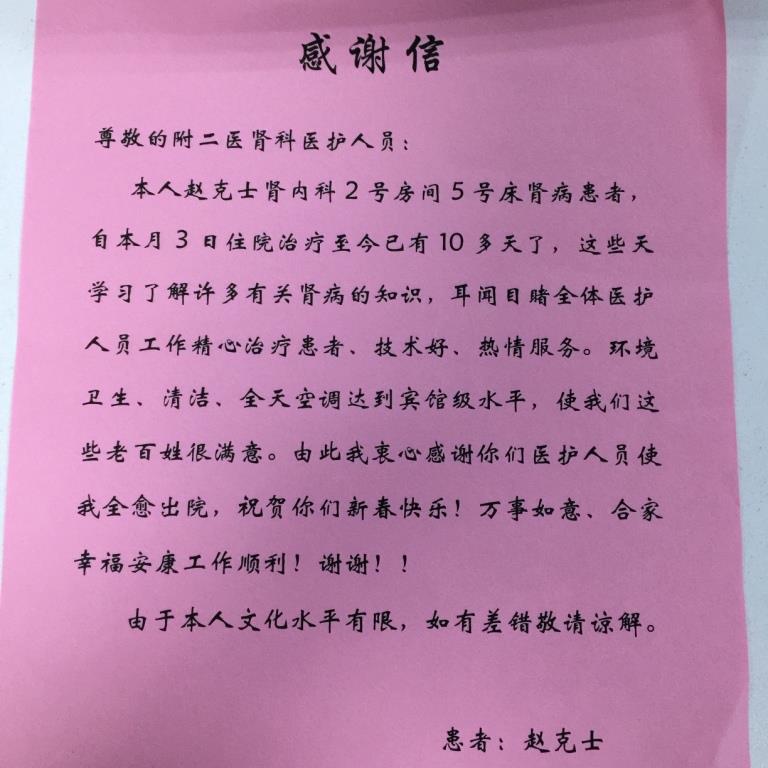 感谢信
尊敬的附二医肾科医护人员：
本人赵克士肾内科2号房间5号床肾病患者，
自本月3日住院治疗至今已有10多天了，这些天
学习了解许多有关肾病的知识，耳闻目睹全体医护
人员工作精心治疗患者、技术好、热情服务。环境
卫生、清洁、全天空调达到宾馆级水平，使我们这
些老百姓很满意。由此我衷心感谢你们医护人员使
我全愈出院，祝贺你们新春快乐！万事如意、合家
幸福安康工作顺利！谢谢！！
由于本人文化水平有限，如有差错敬请谅解。
患者：赵克士